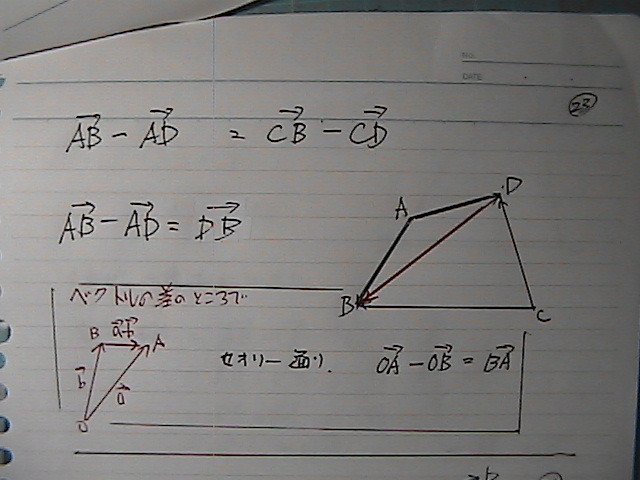 NO.
DATE
23
→AB − →AD = →CB − →CD
→AB − →AD = →DB
A
D
B
C
ベクトルの差のところで
B
→a-→b
A
→b
→a
O
セオリー通り. →OA − →OB = →BA